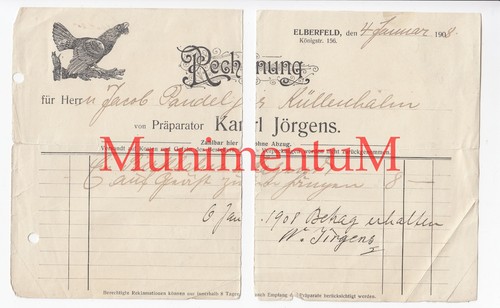 ELBERFELD, den 4 Januar 1908.
Königstr. 156.
Rechnung
für Herrn Jacob Küllenhahn
von Präparator Karl Jörgens.
Zahlbar hier ohne Abzug.
Versandt auf Kosten und Gefahr des
MunimentuM
6 auf 8 —
6 Jan. 1908 Betrag erhalten
W. Jörgens
Berechtigte Reklamationen können nur innerhalb 8 Tagen nach Empfang der Präparate berücksichtigt werden.